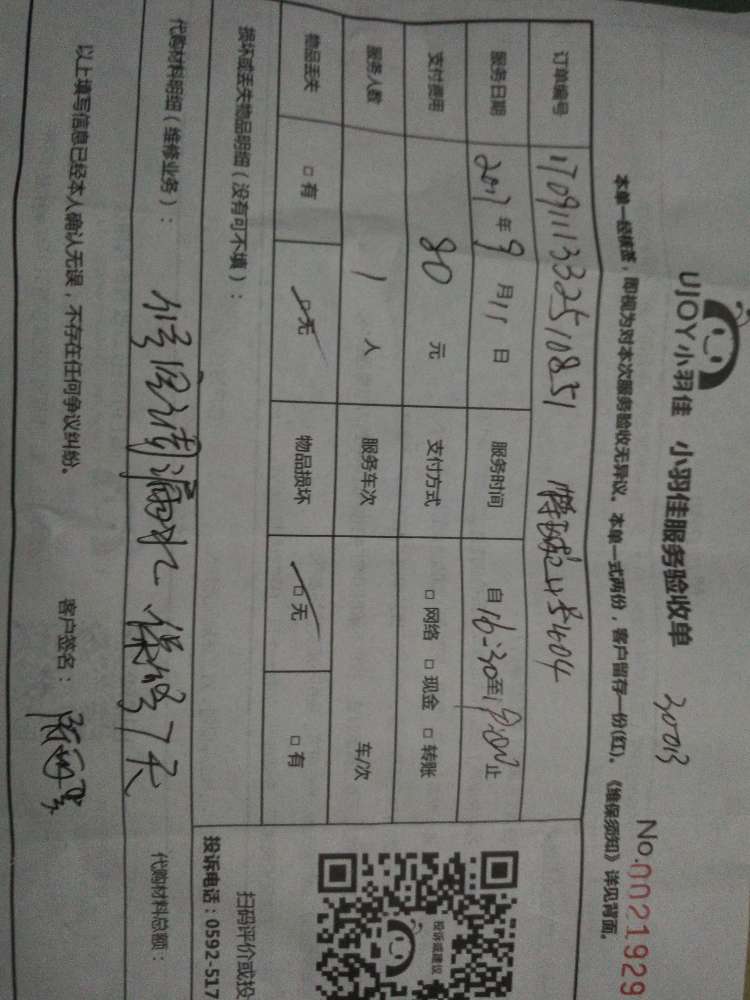 UJOY小羽佳 小羽佳服务验收单
30013
No.0021929
本单一经核签，即视为对本次服务验收无异议。本单一式两份，客户留存一份(红)。《维保须知》详见背面。
订单编号 1709111332510851 45404
服务日期 2017年9月11日 服务时间 自16-30至19:00止
支付费用 80元 支付方式 □网络 □现金 □转账
服务人数 1人 服务车次 车/次
物品丢失 □有 □无 物品损坏 □无 □有
损坏或丢失物品明细（没有可不填）：
扫码评价或投
投诉或建议
投诉电话：0592-517
代购材料明细（维修业务）： 漏水 保修7天 代购材料总额：
以上填写信息已经本人确认无误，不存在任何争议纠纷。 客户签名：